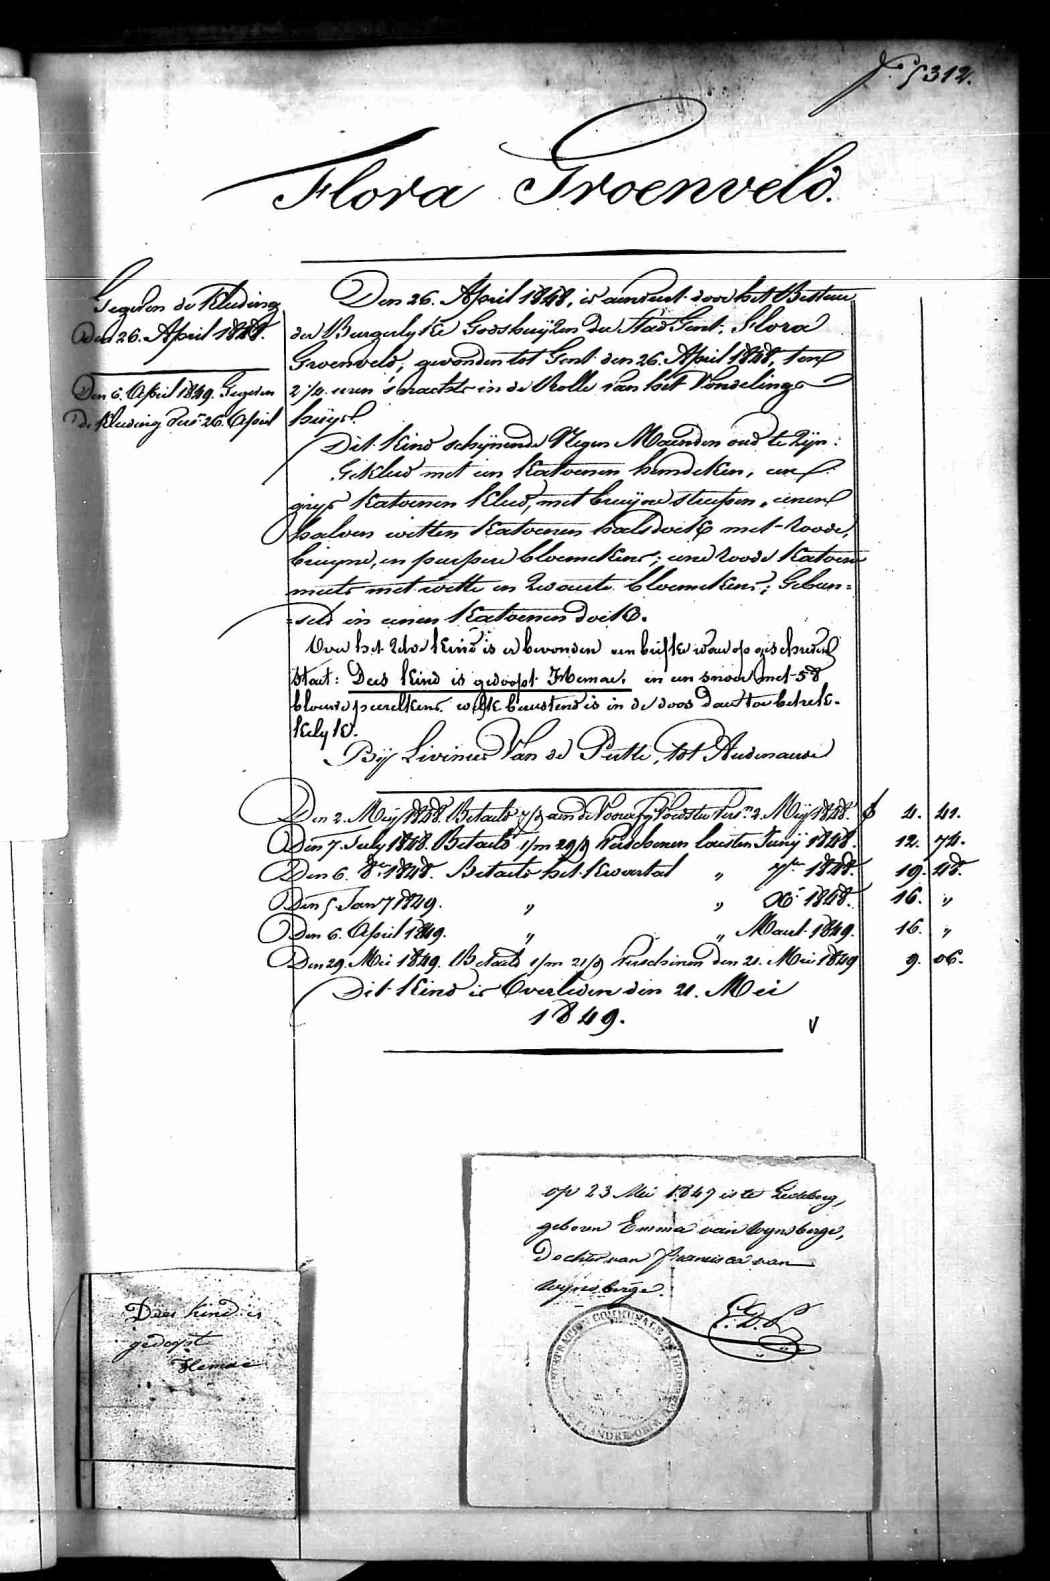 5312.
Flora Groenveld.
Gegeven de Kleeding
Den 26. April 1848.
Den 6. April 1849. Gegeven
De Kleeding vers. 26. April
Den 26. April 1848, is aanveert door het Bestuur
der Burgerlyke Godshuijzen der Stad Gent, Flora
Groenveld, gevonden tot Gent den 26. April 1848, ten
2 1/2 uren 's nachts in de Rolle van het Vondelings
huijs.
Dit Kind schijnende Negen Maenden oud te Zijn:
Gekleed met een Katoenen hemdeken, een
grijs Katoenen kleed, met bruijne streepen, eenen
halven witten Katoenen halsdoek met roode,
bruijne, en purpere bloemekens; eene roode Katoene
muts met witte en Zwarte bloemekens; Gebun-
=seld in eenen Katoenen doek.
Over het Zelve Kind is er bevonden een briefke waer op geschreven
staet: Dees kind is gedoopt Hemae, en een snoer met 58
blauwe peerelkens welke berustend is in de doos daertoe betrek-
kelyk.
Bij Livinus Van de Putte, tot Audenaerde
Den 2. Meij 1848. Betaelt 7/9 aen de Voorzz Voedster vers.n 2. Meij 1848. 4. 41.
Den 7. July 1848. Betaelt 1/m 29/9 verschenen laetsten Junij 1848. 12. 74.
Den 6. 8er 1848. Betaelt het Kwartael " 7ber 1848. 19. 48.
Den 5 Jany 1849. " " Xr 1848. 16. "
Den 6. April 1849. " " Maert 1849. 16. "
Den 29. Mei 1849. Betaelt 1/m 21/9 verschenen den 21. Mei 1849 9. 06.
Dit Kind is Overleden den 21. Mei
1849.
op 23 Mei 1847 is te Ledeberg,
geboren Emma van Wynsberge,
Dochter van Francisca van
Wynsberge.
Dees kind is
gedoopt
Hemae